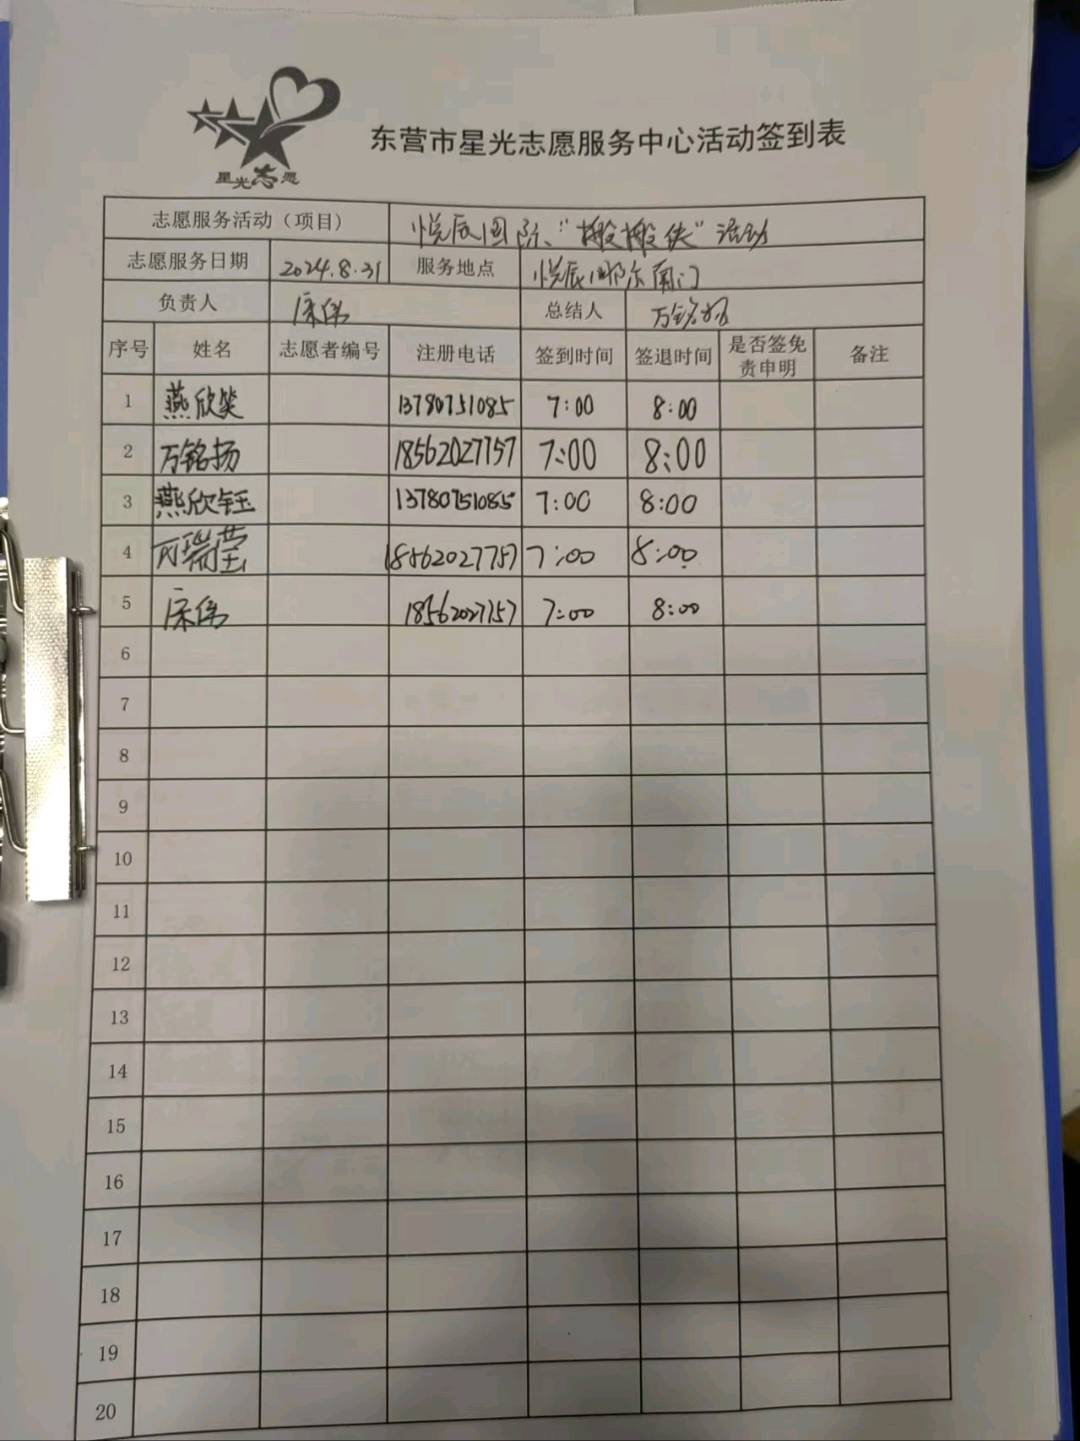 星光志愿
东营市星光志愿服务中心活动签到表
志愿服务活动（项目） 悦辰国际、“搬搬侠”活动
志愿服务日期 2024.8.31 服务地点 悦辰 南门
负责人 总结人 万铭扬
序号 姓名 志愿者编号 注册电话 签到时间 签退时间 是否签免责申明 备注
1 燕欣笑 13780751085 7:00 8:00
2 万铭扬 18562027757 7:00 8:00
3 燕欣钰 13780751085 7:00 8:00
4 万瑞莹 18562027757 7:00 8:00
5 18562027757 7:00 8:00
6
7
8
9
10
11
12
13
14
15
16
17
18
19
20